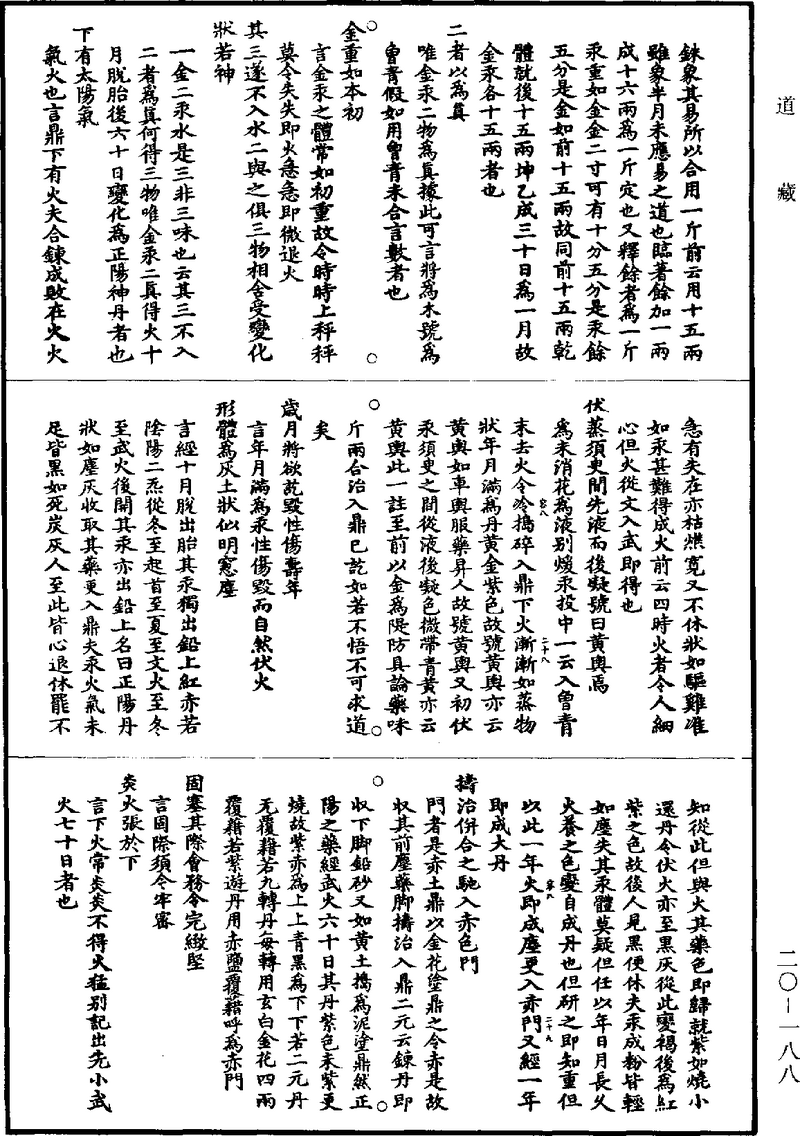 道藏
銖象其易所以合用一斤前云用十五兩
雖象半月未應易之道也臨著餘加一兩
成十六兩為一斤定也又釋餘者為一斤
汞重如金金二寸可有十分五分是汞餘
五分是金如前十五兩故同前十五兩乾
體就後十五兩坤乙成三十日為一月故
金汞各十五兩者也
二者以為真
唯金汞二物為真據此可言將為木號為
曾青假如用曾青未合言數者也
金重如本初
言金汞之體常如初重故令時時上秤秤
莫令失失即火急急即微退火
其三遂不入水二與之俱三物相含受變化
狀若神
一金二汞水是三非三味也云其三不入
二者為真何得三物唯金汞二真得火十
月脫胎後六十日變化為正陽神丹者也
下有太陽氣
氣火也言鼎下有火夫合鍊成敗在火火
急有失在亦枯燥寬又不休狀如驅雞准
如汞甚難得成火前云四時火者令人細
心但火從文入武即得也
伏蒸須臾間先液而後凝號曰黃輿焉
為末消花為液別煖汞投中一云入曾青
末去火令冷搗碎入鼎下火漸漸如蒸物
狀年月滿為丹黃金紫色故號黃輿亦云
黃輿如車輿服藥昇人故號黃輿又初伏
汞須臾之間從液後凝色微帶青黃亦云
黃輿此一註至前以金為隄防具論藥味
斤兩合治入鼎已訖如若不悟不可求道
矣
歲月將欲訖毀性傷壽年
言年月滿為汞性傷毀而自然伏火
形體為灰土狀似明窻塵
言經十月脫出胎其汞獨出鉛上紅赤若
陰陽二炁從冬至起首至夏至文火至冬
至武火後開其汞亦出鉛上名曰正陽丹
狀如塵灰收取其藥更入鼎夫汞火氣未
足皆黑如死炭灰人至此皆心退休罷不
知從此但與火其藥色即歸就紫如燒小
還丹令伏火亦至黑灰從此變褐後為紅
紫之色故後人見黑便休夫汞成粉皆輕
如塵失其汞體莫疑但任以年日月長久
火養之色變自成丹也但研之即知重但
以此一年火即成塵更入赤門又經一年
即成大丹
擣治併合之馳入赤色門
門者是赤土鼎以金花塗鼎之令赤是故
收其前塵藥脚擣治入鼎二元云鍊丹即
收下脚鉛砂又如黃土擣為泥塗鼎然正
陽之藥經武火六十日其丹紫色未紫更
燒故紫赤為上上青黑為下下若二元丹
无覆藉若九轉丹每轉用玄白金花四兩
覆藉若紫遊丹用赤鹽覆藉呼為赤門
固塞其際會務令完緻堅
言固際須令牢審
炎火張於下
言下火常炎炎不得火猛別記出先小武
火七十日者也
二〇－一八八